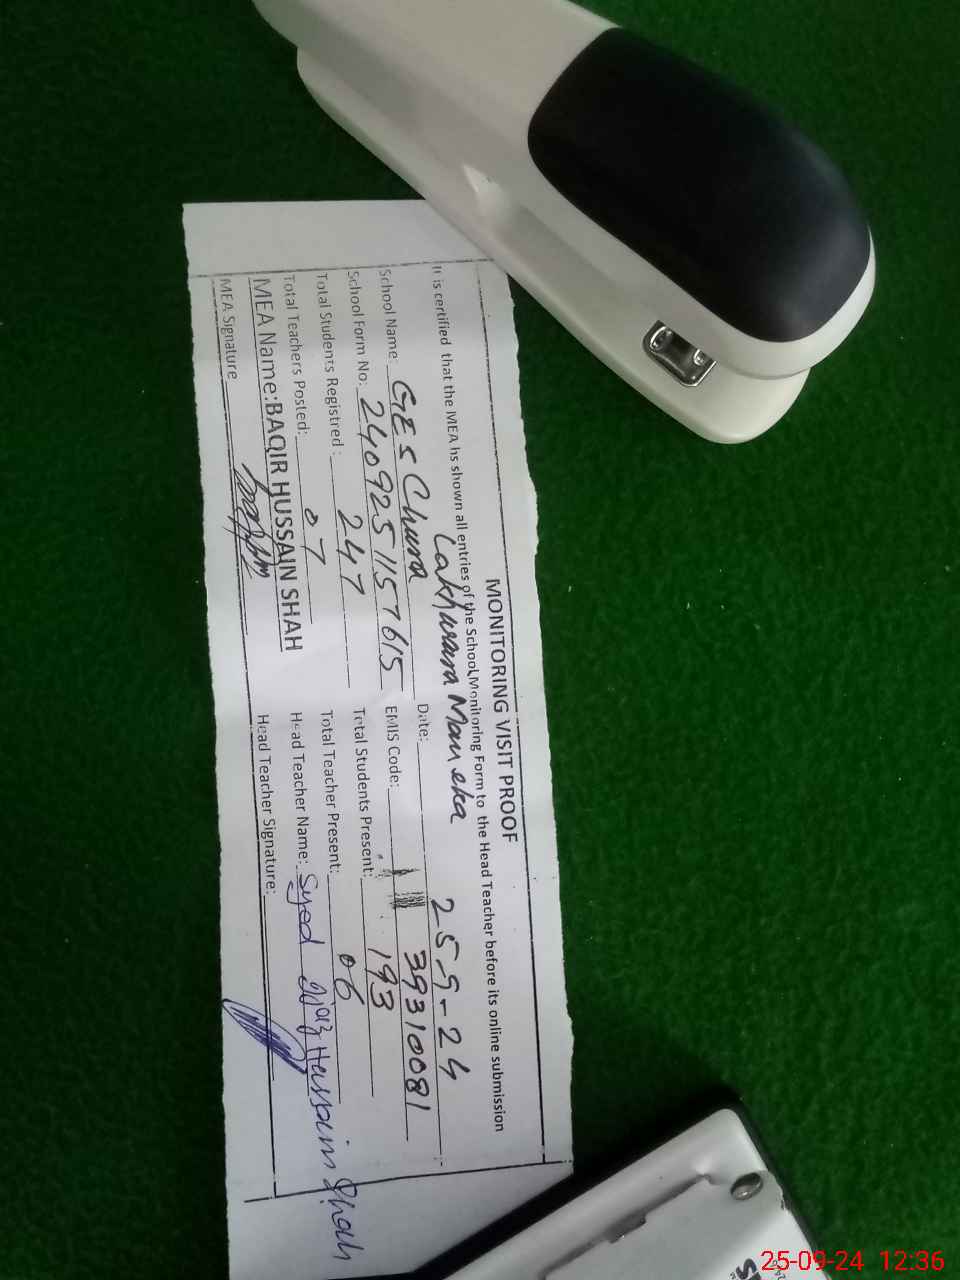 MONITORING VISIT PROOF
It is certified that the MEA hs shown all entries of the School Monitoring Form to the Head Teacher before its online submission
Lakhwara Maneka
School Name: GES Chura Date: 25-9-24
School Form No: 240925 1157615 EMIS Code: 39310081
Total Students Registred : 247 Total Students Present: 193
Total Teachers Posted: 07 Total Teacher Present: 06
MEA Name:BAQIR HUSSAIN SHAH Head Teacher Name: Syed Ijaz Hussain Shah
MEA Signature Head Teacher Signature:
25-09-24 12:36